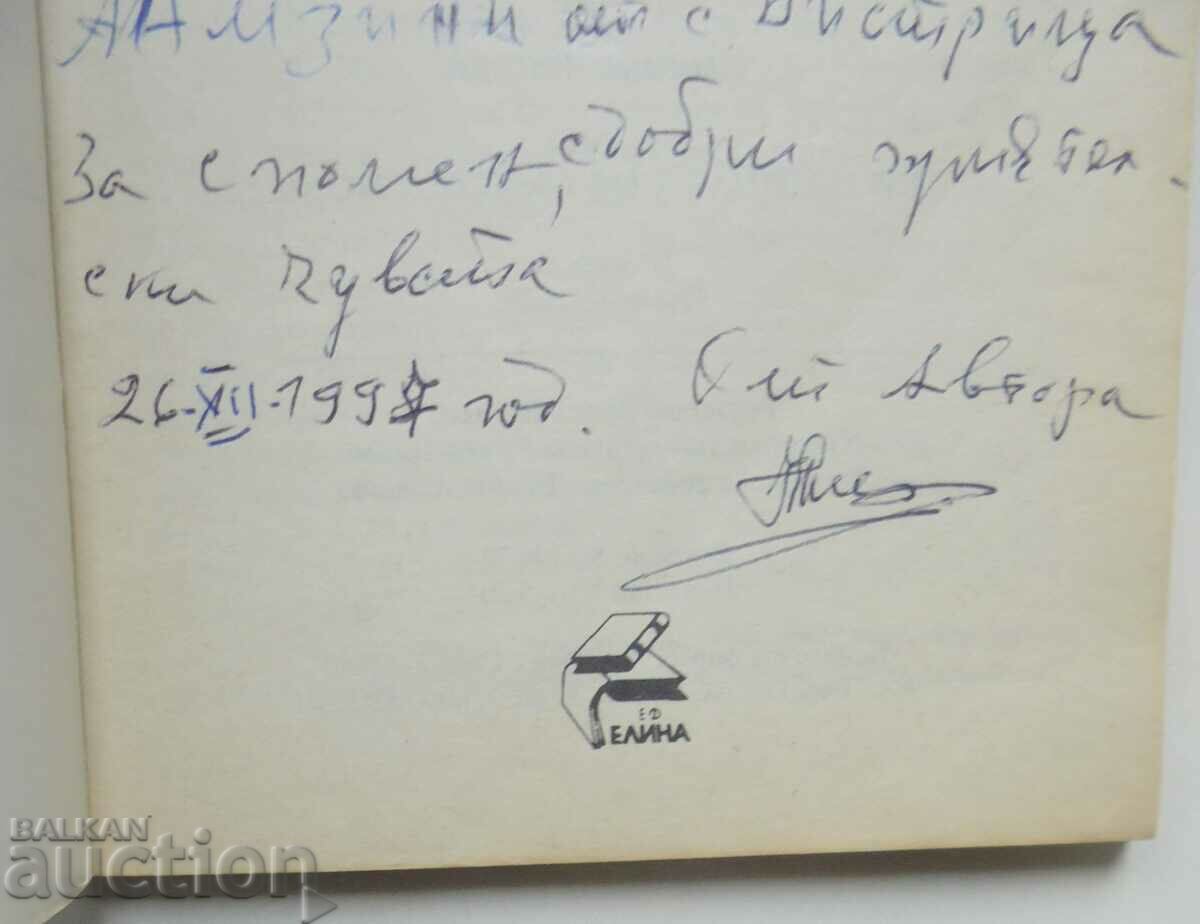 от с. Бистрица
За спомен, с добри приятел.
ски чувства
26-XII-199 год. От Автора
ЕФ
ЕЛИНА
BALKAN
auction